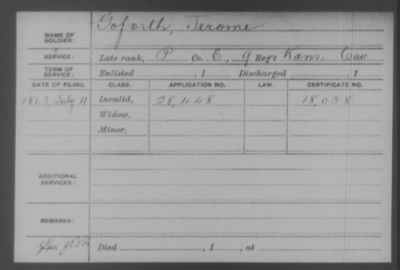 NAME OF SOLDIER: Goforth, Jerome
SERVICE: Late rank, P Co. E, 9 Reg't Kans. Cav.
TERM OF SERVICE: Enlisted , 1 Discharged , 1
DATE OF FILING. CLASS. APPLICATION NO. LAW. CERTIFICATE NO.
1863, July 11 Invalid, 28,448 18,038
Widow,
Minor,
ADDITIONAL SERVICES:
REMARKS:
Died , 1 , at